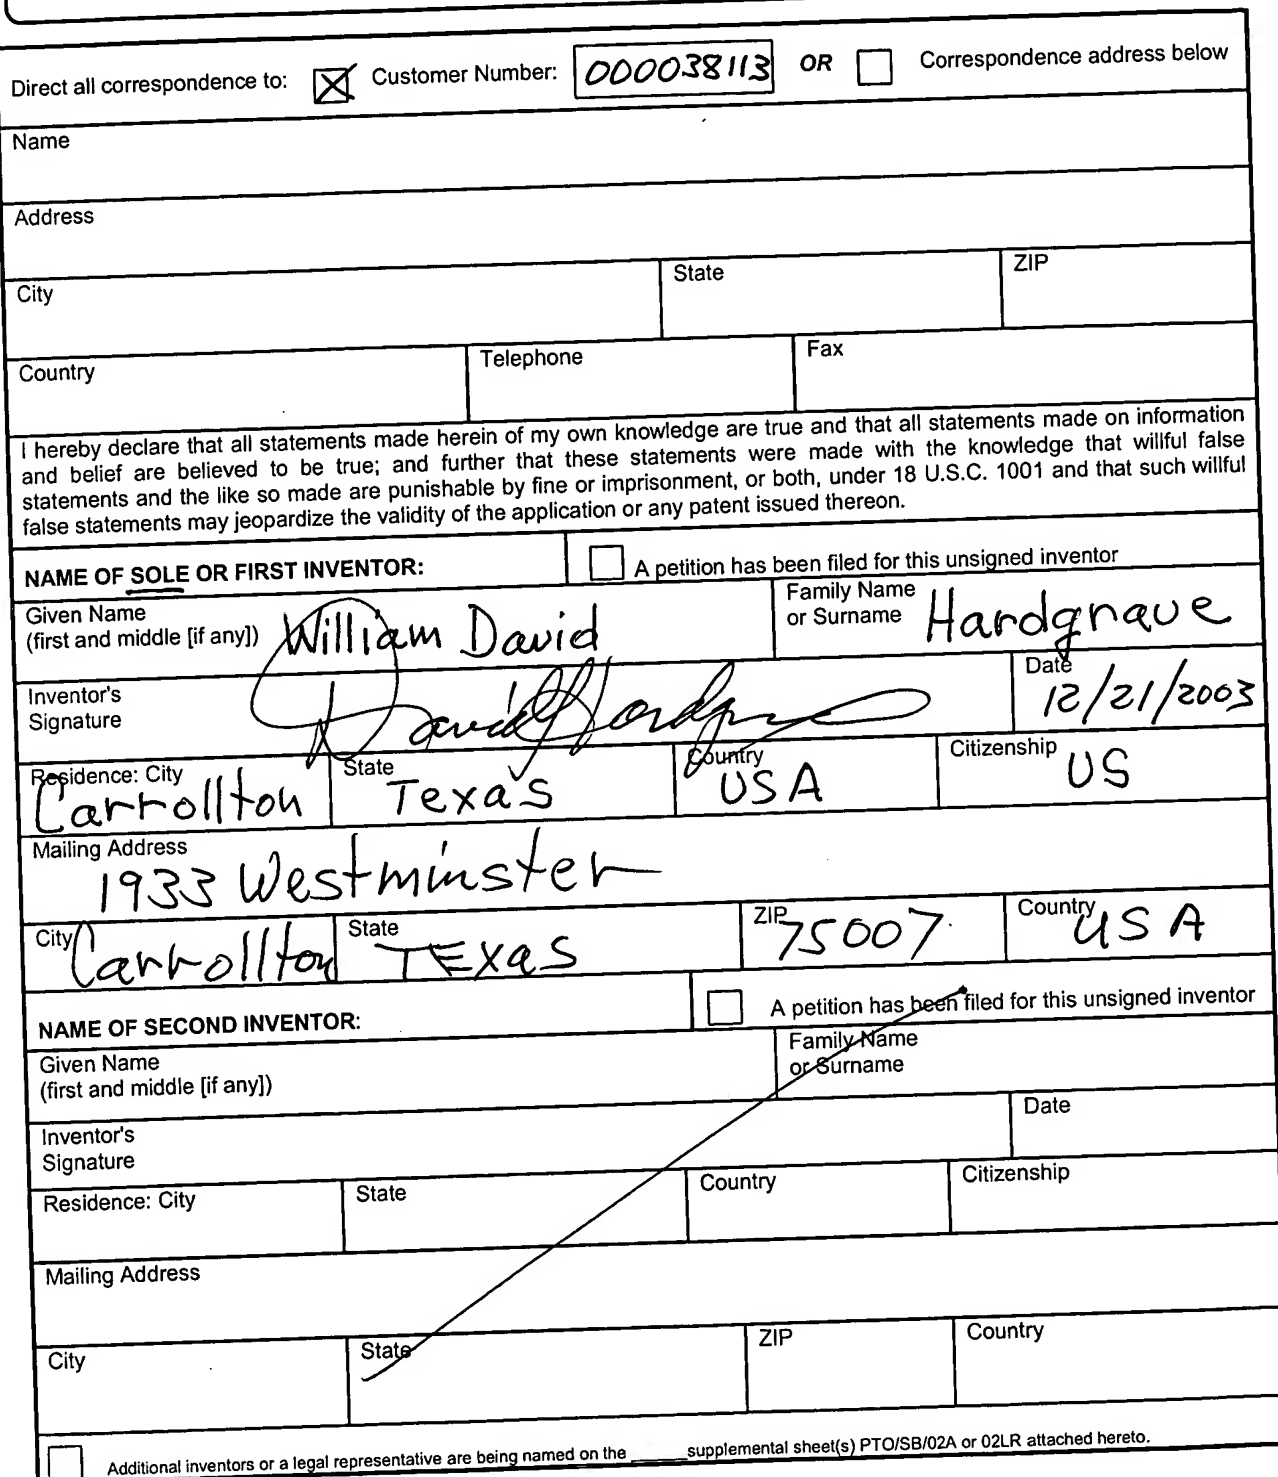 Direct all correspondence to: Customer Number: 000038113 OR Correspondence address below
Name
Address
City State ZIP
Country Telephone Fax
I hereby declare that all statements made herein of my own knowledge are true and that all statements made on information
and belief are believed to be true; and further that these statements were made with the knowledge that willful false
statements and the like so made are punishable by fine or imprisonment, or both, under 18 U.S.C. 1001 and that such willful
false statements may jeopardize the validity of the application or any patent issued thereon.
NAME OF SOLE OR FIRST INVENTOR: A petition has been filed for this unsigned inventor
Given Name
(first and middle [if any]) William David
Family Name
or Surname Hardgrave
Inventor's
Signature David Hardgrave
Date
12/21/2003
Residence: City State Country Citizenship
Carrollton Texas USA US
Mailing Address
1933 Westminster
City State ZIP Country
Carrollton TExas 75007 USA
NAME OF SECOND INVENTOR: A petition has been filed for this unsigned inventor
Given Name
(first and middle [if any])
Family Name
or Surname
Inventor's
Signature
Date
Residence: City State Country Citizenship
Mailing Address
City State ZIP Country
Additional inventors or a legal representative are being named on the ______supplemental sheet(s) PTO/SB/02A or 02LR attached hereto.